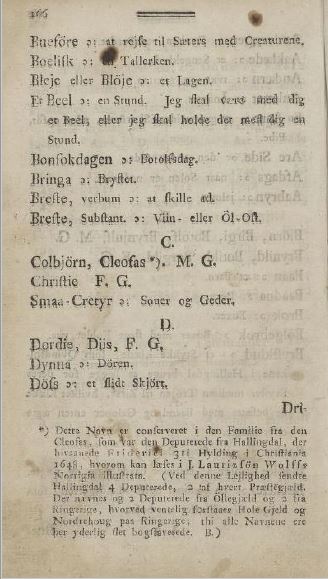 166
Bueföre ɔ: at reise til Sæters med Creaturene.
Boelisk ɔ: en Tallerken.
Bleje eller Blöje ɔ: et Lagen.
Et Beel ɔ: en Stund. Jeg skal være med dig
et Beel, eller jeg skal holde det med dig en
Stund.
Bonsokdagen ɔ: Botolfsdag.
Bringa ɔ: Brystet.
Breste, verbum ɔ: at skille ad.
Breste, Substant. ɔ: Viin- eller Öl-Ost.
C.
Colbjörn, Cleofas *). M. G.
Christie F. G.
Smaa-Cretyr ɔ: Souer og Geder.
D.
Dordie, Düs, F. G.
Dynna ɔ: Dören.
Döss ɔ: et slidt Skjört.
Dri-
*) Dette Navn er conserveret i den Familie fra den
Cleofas, som var den Deputerede fra Hallingdal, der
bivaanede Friderici 3tii Hylding i Christiania
1648, hvorom kan læses i J. Laurizsön Wolffs
Norrigia illustrata. (Ved denne Leilighed sendte
Hallingdal 4 Deputerede, 2 af hvert Præstegjeld.
Der nævnes og 2 Deputerede fra Ollegjæld og 2 fra
Ringerige, hvorved ventelig forstaaes Hole Gjeld og
Nordrehoug paa Ringerige; thi alle Navnene ere
her yderlig slet bogstaverede. B.)